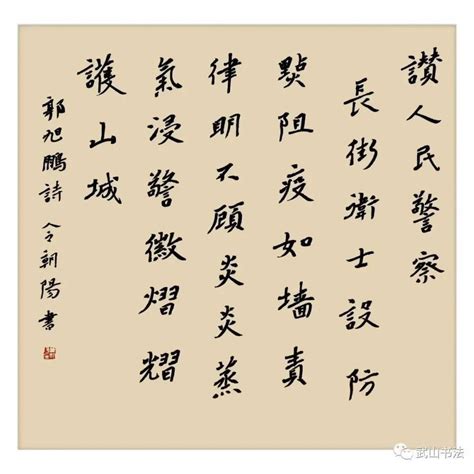 讚人民警察
長街衛士設防
點阻疫如墙責
律明不顧炎炎蒸
氣浸警徽熠熠
護山城
郭旭鵬詩 令朝陽書
武山书法